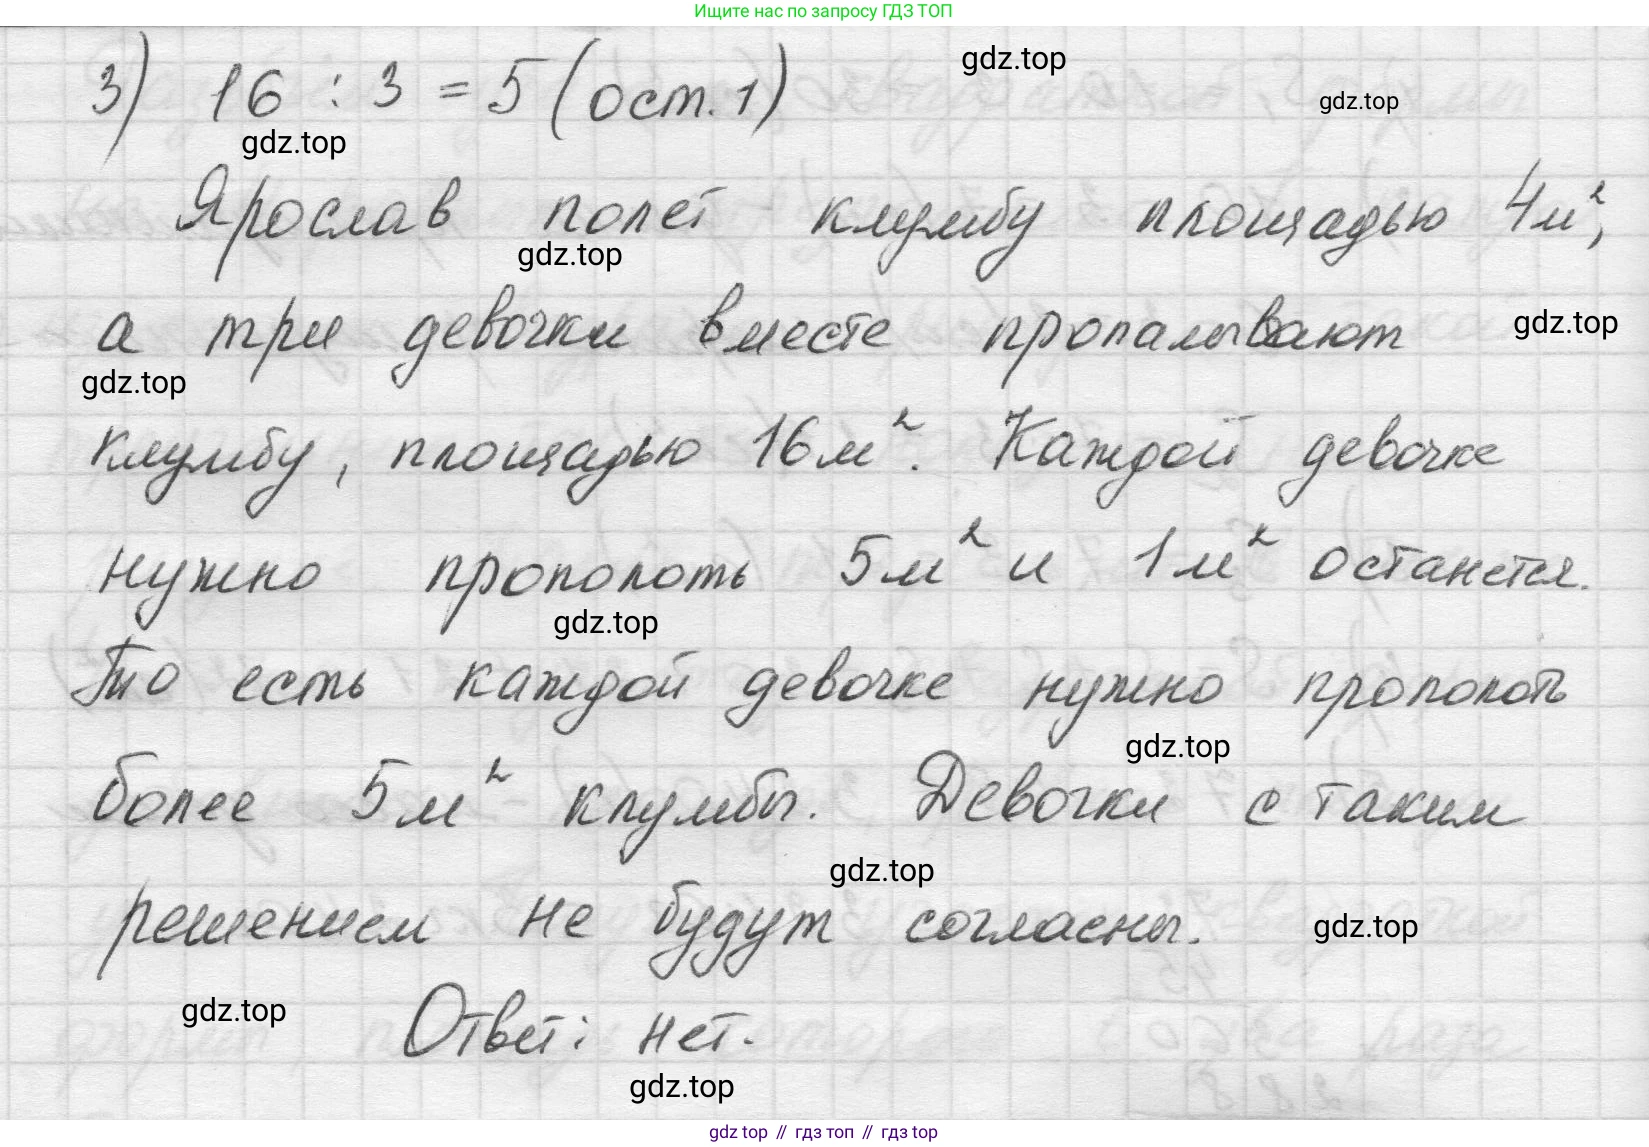 Ищите нас по запросу ГДЗ ТОП
3) 16 : 3 = 5 (ост. 1)
gdz.top
gdz.top
gdz.top
Ярослав полет клумбу площадью 4м²,
gdz.top
а три девочки вместе пропалывают
gdz.top
gdz.top
клумбу, площадью 16м². Каждой девочке
нужно прополоть 5м² и 1м² останется.
gdz.top
То есть каждой девочке нужно прополоть
gdz.top
более 5м² клумбы. Девочки с таким
gdz.top
решением не будут согласны.
gdz.top
gdz.top
Ответ: нет.
gdz.top
gdz top // гдз топ // гдз top